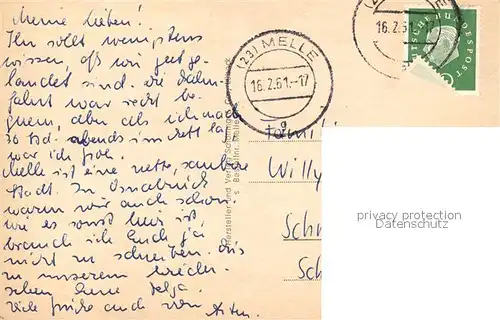 Meine Lieben!
Ihr sollt wenigstens
wissen, daß wir gut ge-
landet sind. Die Bahn-
fahrt war recht be-
quem, aber als ich nach
Std. abends im Bett lag
war ich froh.
Melle ist eine nette, saubere
Stadt. In Osnabrück
waren wir auch schon.
Wie es sonst hier ist,
brauch ich Euch ja
nicht zu schreiben. Bis
zu unserem Wieder-
sehen Eure
Viele Grüße auch von
(23) MELLE
16.2.61.-17
a
16.2.61
DEUTSCHE BUNDESPOST
Hersteller und Verlag Schöning
Bestellnr. Melle
Familie
Willy
Sch
Sch
privacy protection
Datenschutz